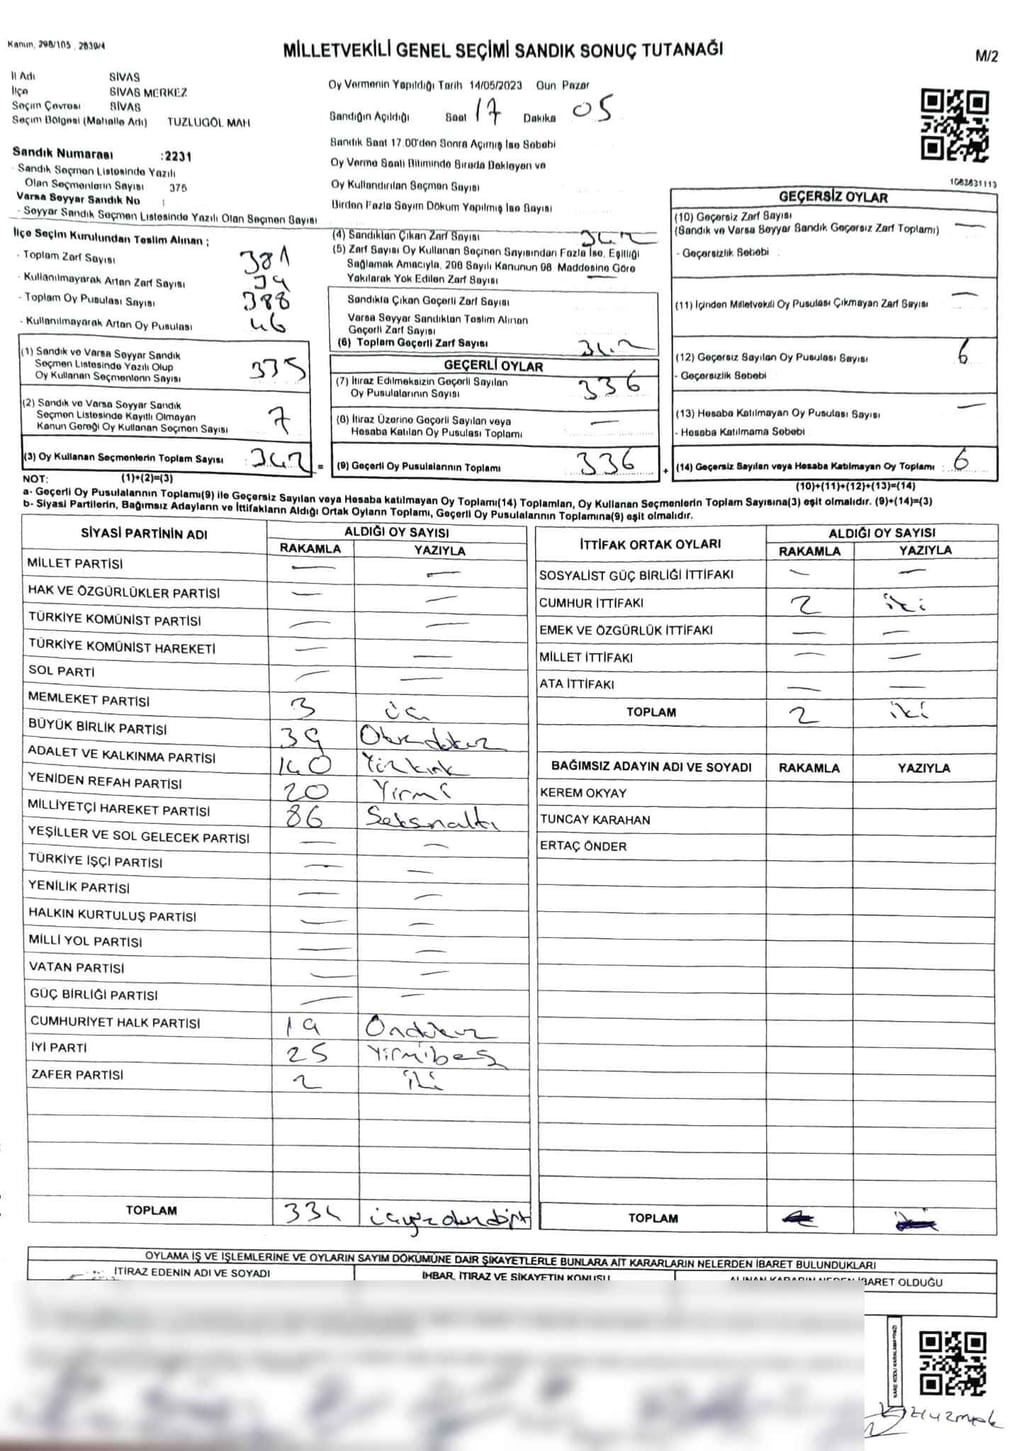 Kanun, 298/105 , 2839/4
MİLLETVEKİLİ GENEL SEÇİMİ SANDIK SONUÇ TUTANAĞI
M/2
İl Adı SİVAS
İlçe SİVAS MERKEZ
Seçim Çevresi SİVAS
Seçim Bölgesi (Mahalle Adı) TUZLUGÖL MAH
Sandık Numarası :2231
- Sandık Seçmen Listesinde Yazılı
Olan Seçmenlerin Sayısı 375
Varsa Seyyar Sandık No :
- Seyyar Sandık Seçmen Listesinde Yazılı Olan Seçmen Sayısı
Oy Vermenin Yapıldığı Tarih 14/05/2023 Gün Pazar
Sandığın Açıldığı Saat 17 Dakika 05
Sandık Saat 17.00'den Sonra Açımış İse Sebebi
Oy Verme Saati Bitiminde Sırada Bekleyen ve
Oy Kullandırılan Seçmen Sayısı
Birden Fazla Sayım Döküm Yapılmış İse Sayısı
1083831113
İlçe Seçim Kurulundan Teslim Alınan ;
- Toplam Zarf Sayısı 381
- Kullanılmayarak Artan Zarf Sayısı 39
- Toplam Oy Pusulası Sayısı 388
- Kullanılmayarak Artan Oy Pusulası 46
(1) Sandık ve Varsa Seyyar Sandık
Seçmen Listesinde Yazılı Olup
Oy Kullanan Seçmenlerin Sayısı 335
(2) Sandık ve Varsa Seyyar Sandık
Seçmen Listesinde Kayıtlı Olmayan
Kanun Gereği Oy Kullanan Seçmen Sayısı 7
(3) Oy Kullanan Seçmenlerin Toplam Sayısı : 342 =
(4) Sandıktan Çıkan Zarf Sayısı 342
(5) Zarf Sayısı Oy Kullanan Seçmen Sayısından Fazla İse, Eşitliği
Sağlamak Amacıyla, 298 Sayılı Kanunun 98 Maddesine Göre
Yakılarak Yok Edilen Zarf Sayısı —
Sandıkta Çıkan Geçerli Zarf Sayısı
Varsa Seyyar Sandıktan Teslim Alınan
Geçerli Zarf Sayısı
(6) Toplam Geçerli Zarf Sayısı 342
GEÇERLİ OYLAR
(7) İtiraz Edilmeksizin Geçerli Sayılan
Oy Pusulalarının Sayısı 336
(8) İtiraz Üzerine Geçerli Sayılan veya
Hesaba Katılan Oy Pusulası Toplamı —
(9) Geçerli Oy Pusulalarının Toplamı 336 +
GEÇERSİZ OYLAR
(10) Geçersiz Zarf Sayısı
(Sandık ve Varsa Seyyar Sandık Geçersiz Zarf Toplamı) —
- Geçersizlik Sebebi
(11) İçinden Milletvekili Oy Pusulası Çıkmayan Zarf Sayısı —
(12) Geçersiz Sayılan Oy Pusulası Sayısı 6
- Geçersizlik Sebebi
(13) Hesaba Katılmayan Oy Pusulası Sayısı —
- Hesaba Katılmama Sebebi
(14) Geçersiz Sayılan veya Hesaba Katılmayan Oy Toplamı : 6
NOT: (1)+(2)=(3) (10)+(11)+(12)+(13)=(14)
a- Geçerli Oy Pusulalarının Toplamı(9) ile Geçersiz Sayılan veya Hesaba katılmayan Oy Toplamı(14) Toplamları, Oy Kullanan Seçmenlerin Toplam Sayısına(3) eşit olmalıdır. (9)+(14)=(3)
b- Siyasi Partilerin, Bağımsız Adayların ve İttifakların Aldığı Ortak Oyların Toplamı, Geçerli Oy Pusulalarının Toplamına(9) eşit olmalıdır.
SİYASİ PARTİNİN ADI ALDIĞI OY SAYISI
RAKAMLA YAZIYLA
MİLLET PARTİSİ — —
HAK VE ÖZGÜRLÜKLER PARTİSİ — —
TÜRKİYE KOMÜNİST PARTİSİ — —
TÜRKİYE KOMÜNİST HAREKETİ — —
SOL PARTİ — —
MEMLEKET PARTİSİ 3 üç
BÜYÜK BİRLİK PARTİSİ 39 Otuzdokuz
ADALET VE KALKINMA PARTİSİ 140 Yüzkırk
YENİDEN REFAH PARTİSİ 20 Yirmi
MİLLİYETÇİ HAREKET PARTİSİ 86 Seksenaltı
YEŞİLLER VE SOL GELECEK PARTİSİ — —
TÜRKİYE İŞÇİ PARTİSİ — —
YENİLİK PARTİSİ — —
HALKIN KURTULUŞ PARTİSİ — —
MİLLİ YOL PARTİSİ — —
VATAN PARTİSİ — —
GÜÇ BİRLİĞİ PARTİSİ — —
CUMHURİYET HALK PARTİSİ 19 Ondokuz
İYİ PARTİ 25 Yirmibeş
ZAFER PARTİSİ 2 iki
TOPLAM 334 üçyüzotuzdört
İTTİFAK ORTAK OYLARI ALDIĞI OY SAYISI
RAKAMLA YAZIYLA
SOSYALİST GÜÇ BİRLİĞİ İTTİFAKI — —
CUMHUR İTTİFAKI 2 iki
EMEK VE ÖZGÜRLÜK İTTİFAKI — —
MİLLET İTTİFAKI — —
ATA İTTİFAKI — —
TOPLAM 2 iki
BAĞIMSIZ ADAYIN ADI VE SOYADI RAKAMLA YAZIYLA
KEREM OKYAY
TUNCAY KARAHAN
ERTAÇ ÖNDER
TOPLAM
OYLAMA İŞ VE İŞLEMLERİNE VE OYLARIN SAYIM DÖKÜMÜNE DAİR ŞİKAYETLERLE BUNLARA AİT KARARLARIN NELERDEN İBARET BULUNDUKLARI
İTİRAZ EDENİN ADI VE SOYADI İHBAR, İTİRAZ VE ŞİKAYETİN KONUSU ALINAN KARARIN NEDEN İBARET OLDUĞU